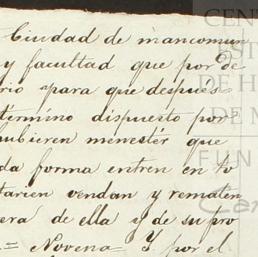 Ciudad de mancomun
y facultad que por de
rio apara que despues
termino dispuesto por
hubieren menestér que
da forma entren en to
tarien vendan y rematen
era de ella y de su pro
= Novena = Y por el
CEN
EST
DE H
DE M
FUN